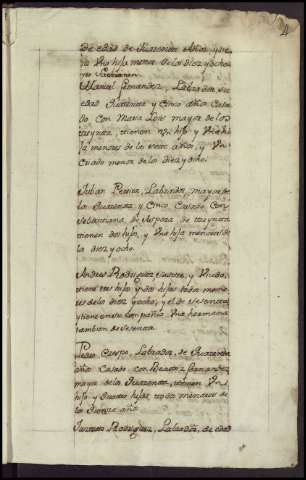 de edad de Quarenta Años, y tiene
Una hija menor de los diez y ocho
Manuel Fernandez, Labrador de
edad Quarenta y Cinco años Casa
do con Maria Lois mayor de los
treynta, tienen un hijo y
la menores de los siete años, y Un
Criado menor de los diez y ocho.
Juban Pereira, Labrador, mayor de
los Quarenta y Cinco Casado Con
Sebastiana de Aspera de treynta
tienen dos hijos, y Una hija menores de
los diez y ocho
Andres Rodriguez Sastre, y Viudo,
tiene tres hijos y dos hijas todos meno
res de los diez y ocho, y el de Sesenta
y tiene en su Compañia Una hermana
tambien de Sesenta
Pedro Crespo, Labrador, de Quarenta
años Casado con Beatriz Fernandez
mayor de los Quarenta, tienen Un
hijo y Quatro hijas todos menores de
los Quince años
Rodriguez, Labrador, de edad